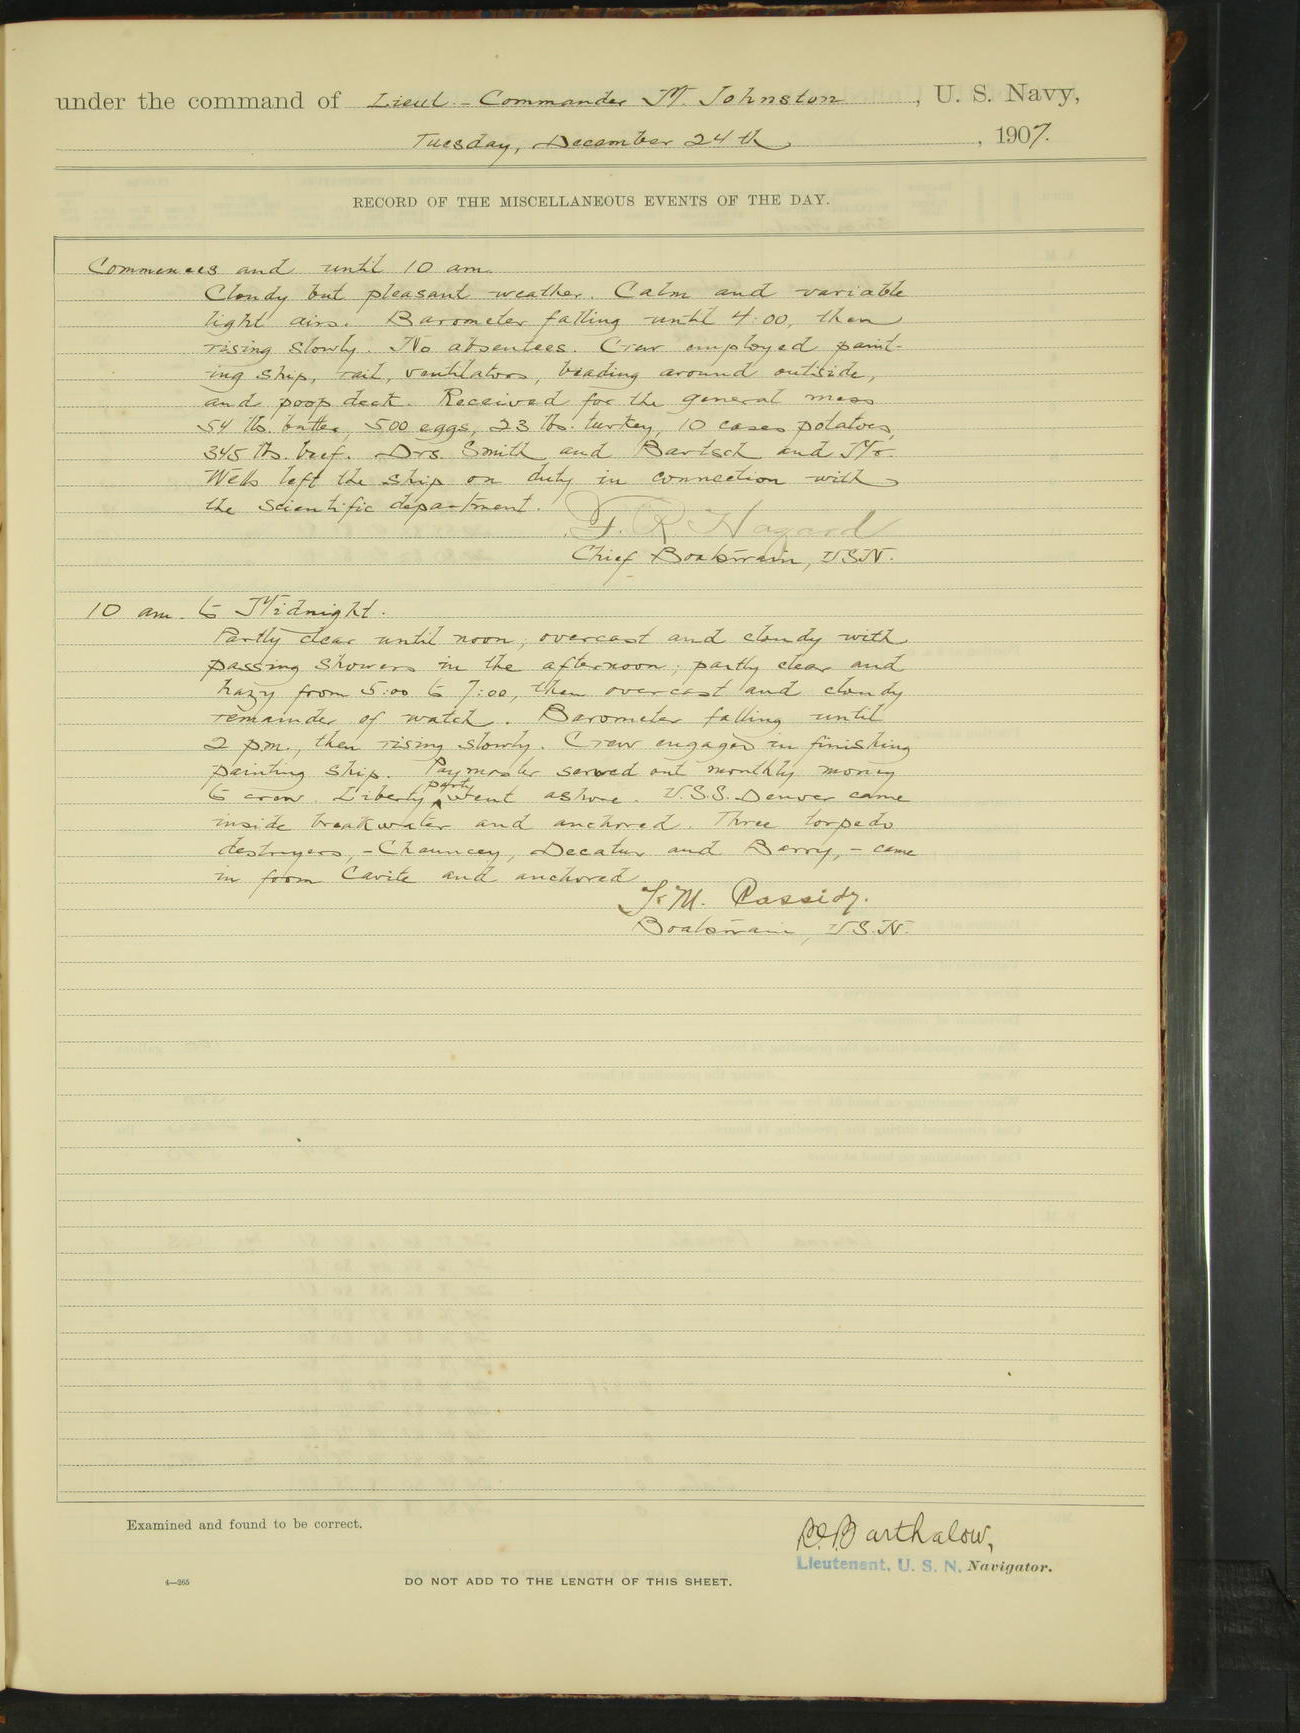 under the command of Lieut - Commander M. Johnston, U. S. Navy,
Tuesday, December 24th, 1907.
RECORD OF THE MISCELLANEOUS EVENTS OF THE DAY.
Commences and until 10 am.
Cloudy but pleasant weather. Calm and variable
light airs. Barometer falling until 4:00, then
rising slowly. No absentees. Crew employed paint-
ing ship, rail, ventilators, beading around outside,
and poop deck. Received for the general mess
54 lbs. butter, 500 eggs, 23 lbs. turkey, 10 cases potatoes,
345 lbs. beef. Drs Smith and Bartsch and Mr.
Wells left the ship on duty in connection with
the scientific department.
F. R. Hazard
Chief Boatswain, USN.
10 am. to Midnight.
Partly clear until noon; overcast and cloudy with
passing showers in the afternoon; partly clear and
hazy from 5:00 to 7:00, then overcast and cloudy
remainder of watch. Barometer falling until
2 p.m., then rising slowly. Crew engaged in finishing
painting ship. Paymaster served out monthly money
to crew. Liberty party went ashore. U.S.S. Denver came
inside breakwater and anchored. Three torpedo
destroyers, - Chauncey, Decatur and Barry, - came
in from Cavite and anchored.
M. Cassidy.
Boatswain, U.S.N.
Examined and found to be correct.
Barthalow,
Lieutenant, U. S. N. Navigator.
4—265
DO NOT ADD TO THE LENGTH OF THIS SHEET.